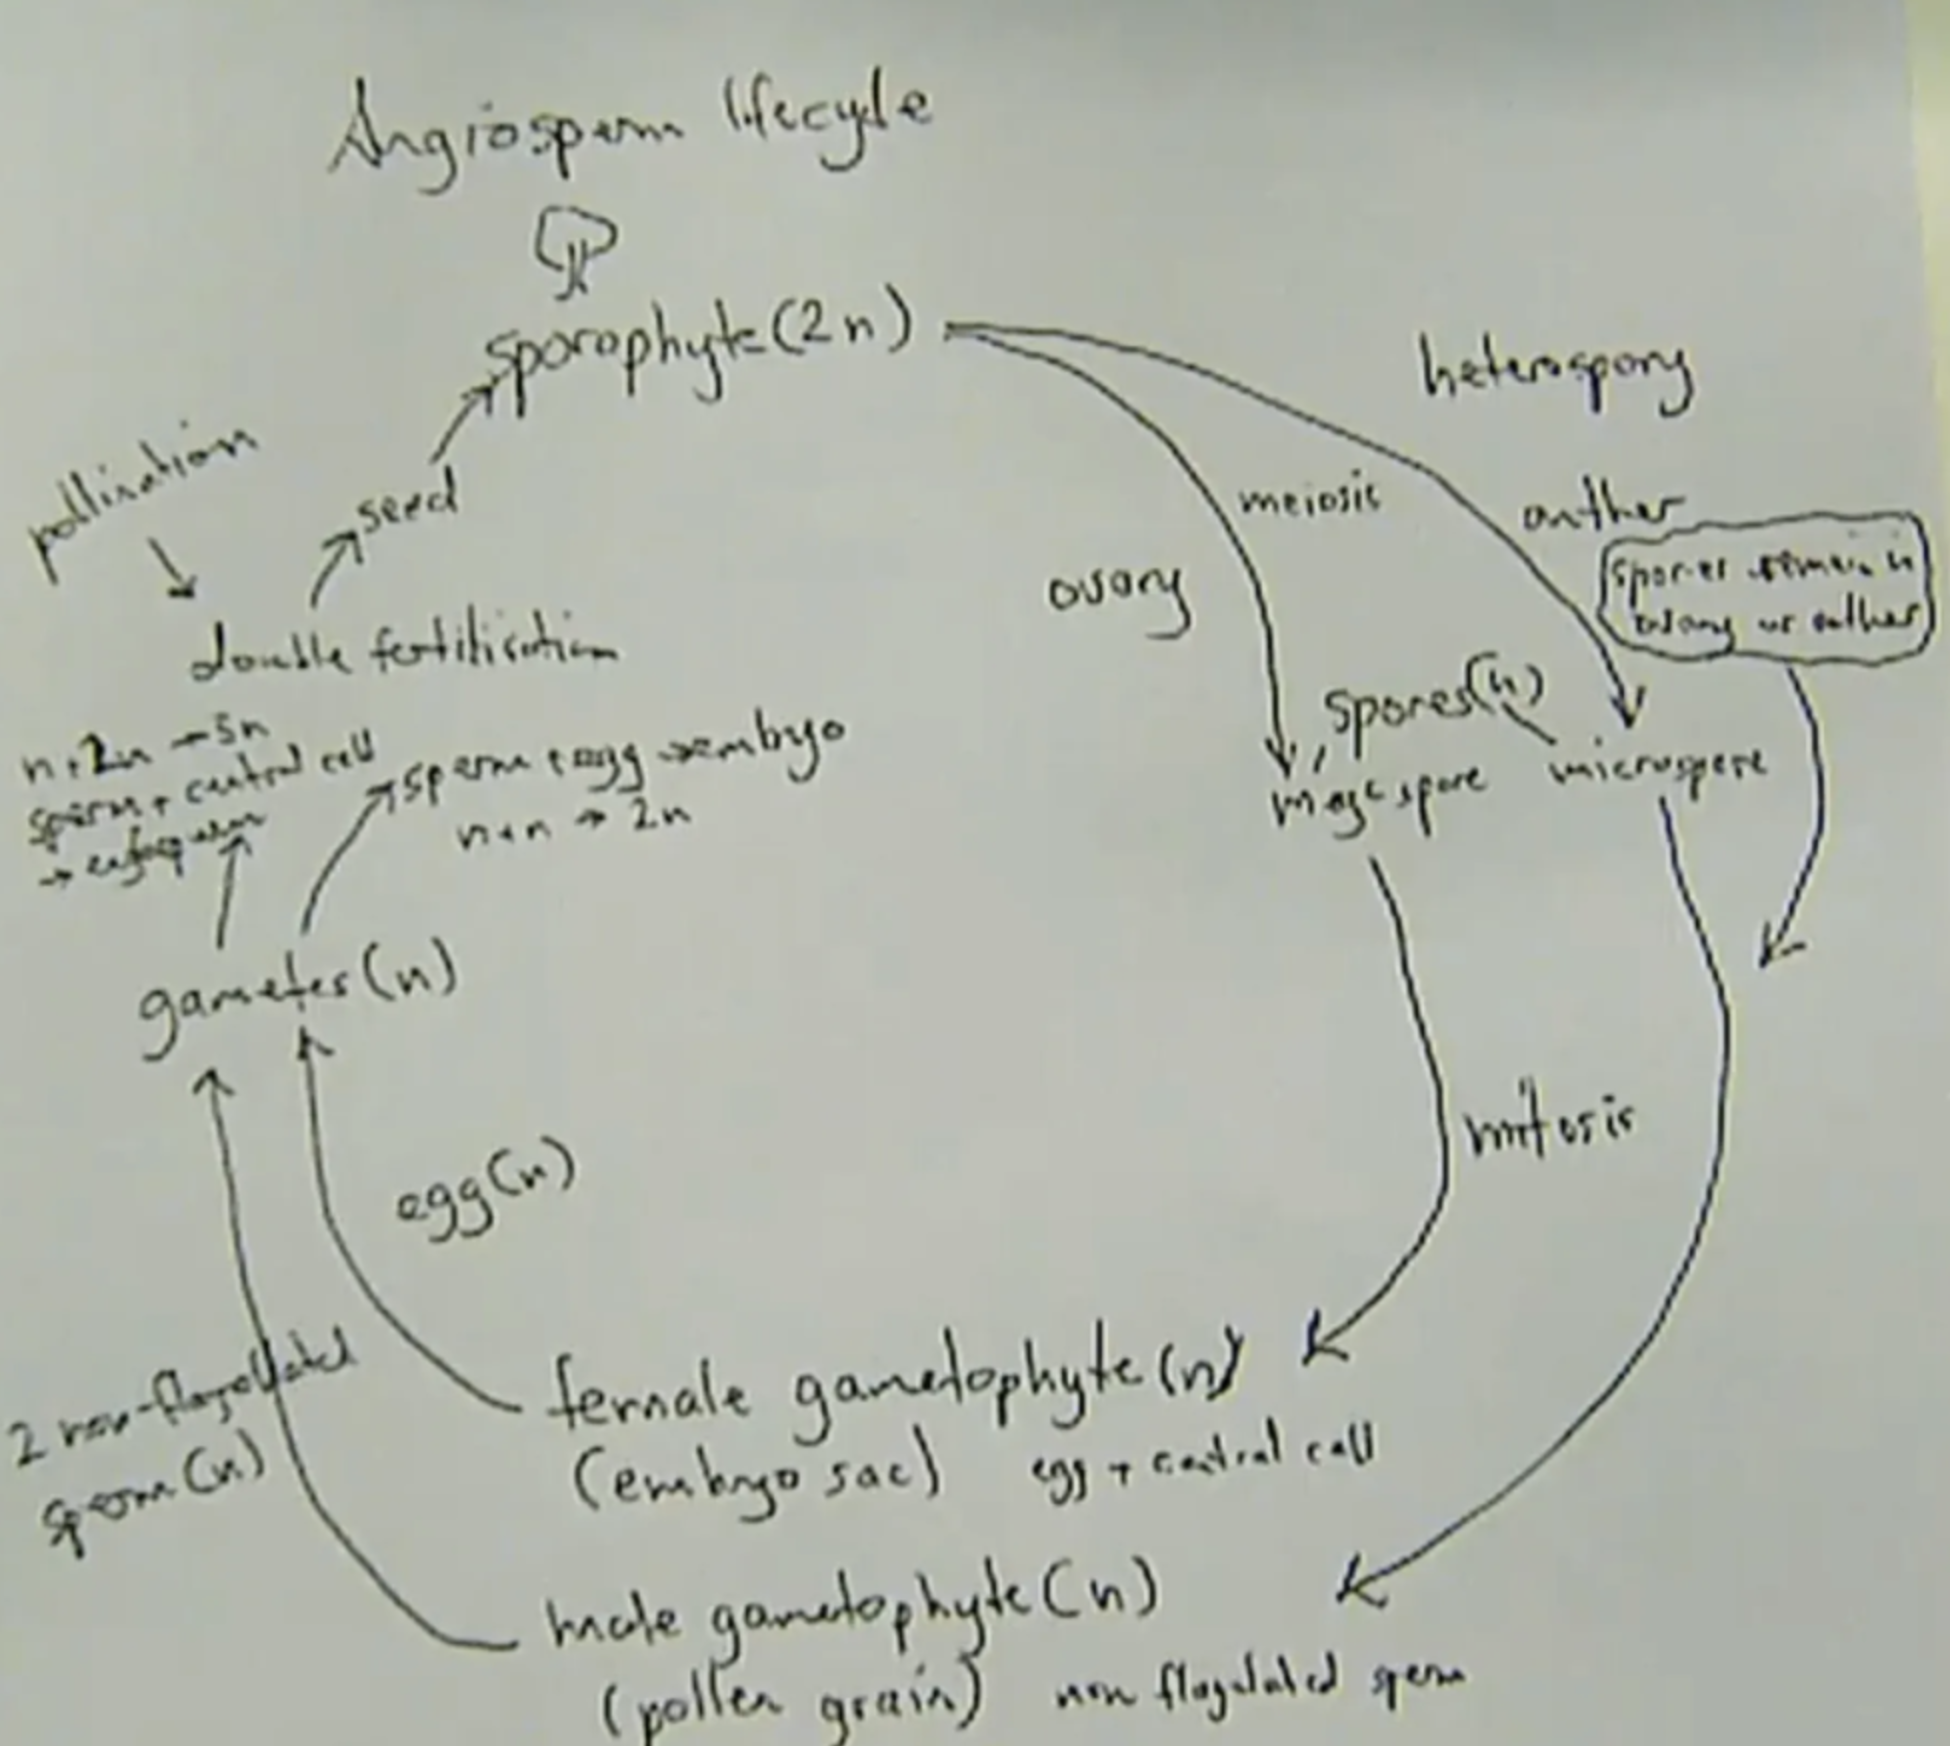 Angiosperm lifecycle
sporophyte(2n)
heterospory
pollination
seed
meiosis
anther
ovary
spores remain in
ovary or anther
double fertilisation
spores(n)
n+2n → 3n
sperm + central cell
→ endosperm
sperm + egg → embryo
n+n → 2n
megaspore
microspore
gametes(n)
mitosis
egg(n)
2 non-flagellated
sperm(n)
female gametophyte(n)
(embryo sac) egg + central cell
male gametophyte(n)
(pollen grain) non flagulated sperm